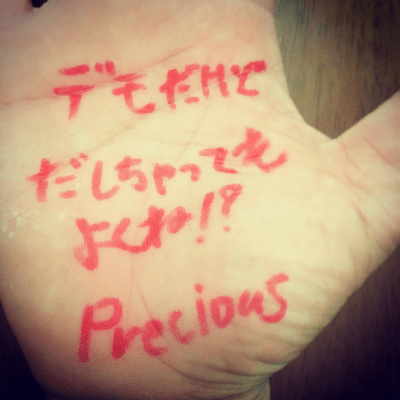 デモだけど
だしちゃっても
よくね!?
Precious